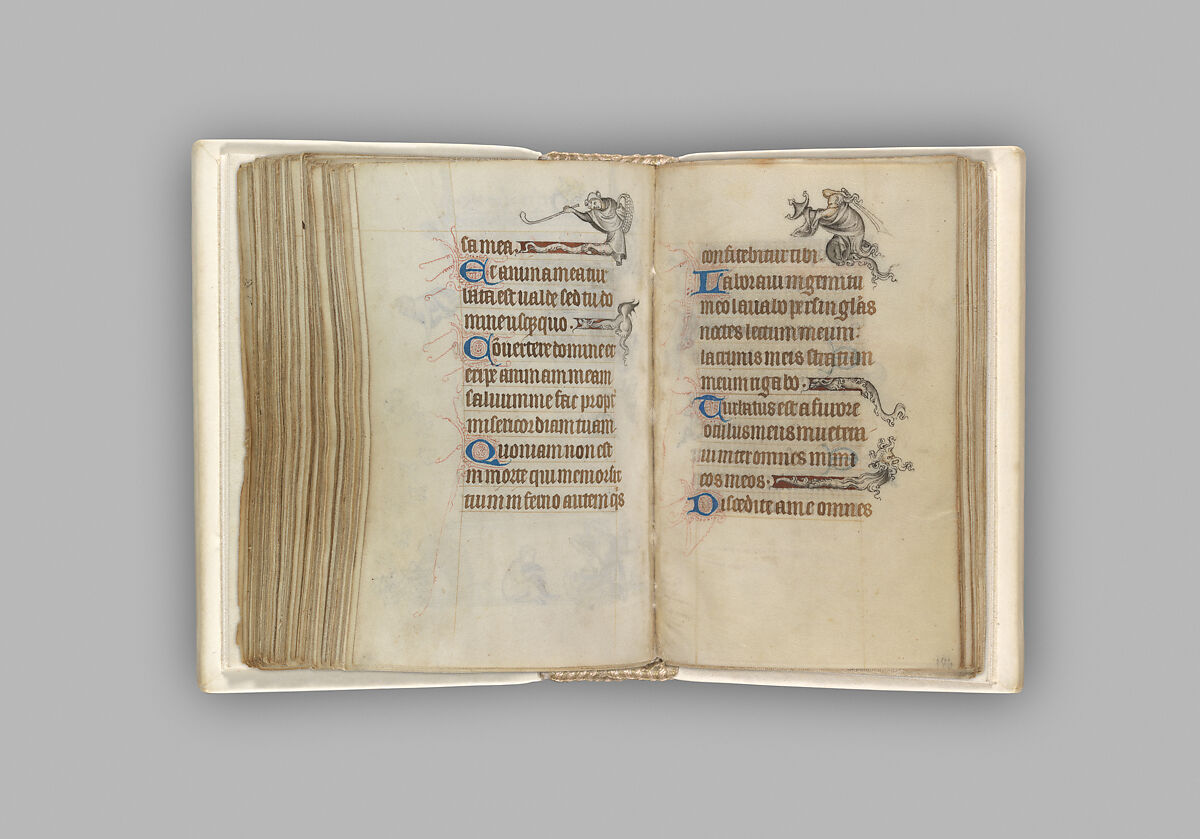 sa mea.
Et anima mea tur
bata est ualde sed tu do
mine usqȝ quo.
Cōuertere domine et
eripe animam meam
saluum me fac propt̄
misericordiam tuam
Quoniam non est
in morte qui memor sit
tuum in ferno autem qͥs
confitebitur tibi.
Laboraui in gemitu
meo lauabo per singlās
noctes lectum meum:
lacrimis meis stratum
meum rigabo.
Turbatus est a furore
oculus meus inuetera
ui inter omnes inimi
cos meos.
Discedite a me omnes